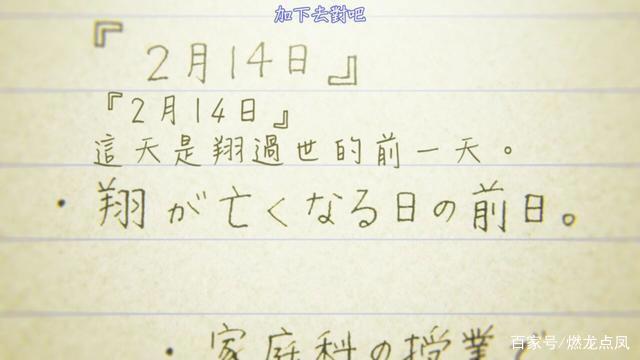 加下去對吧
『2月14日』
『2月14日』
這天是翔過世的前一天。
・翔が亡くなる日の前日。
・家庭科の授業で
百家号/燃龙点凤